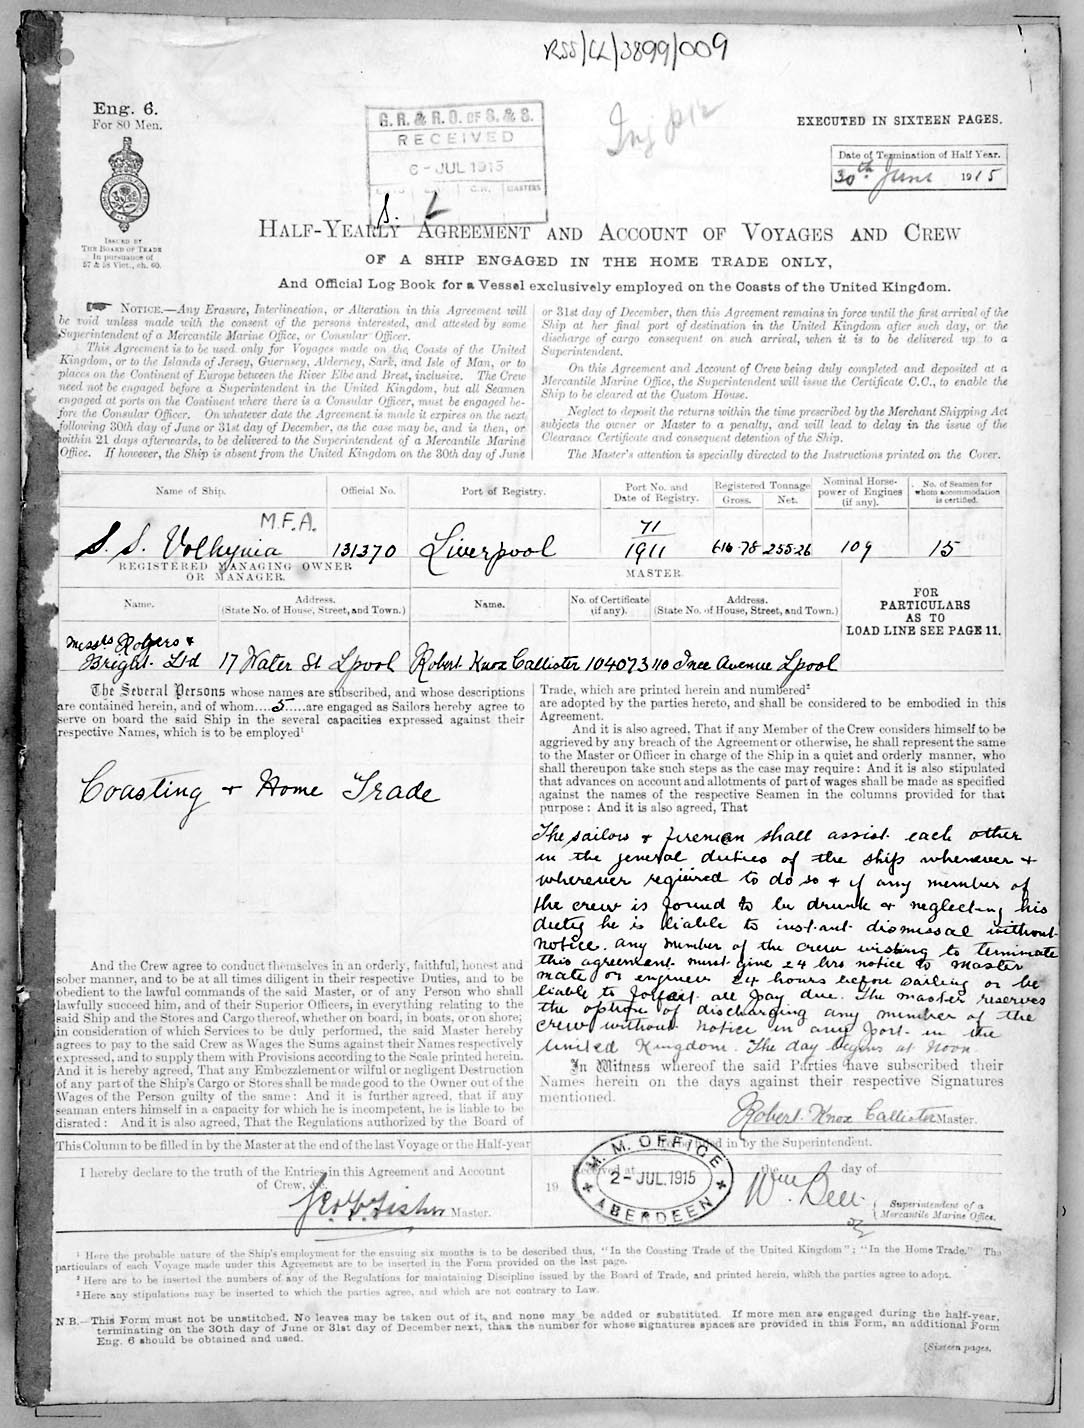 RSS/CL/3899/009
Eng. 6.
For 80 Men.
ISSUED BY
THE BOARD OF TRADE
In pursuance of
57 & 58 Vict., ch. 60.
G. R. & R. O. OF S. & S.
RECEIVED
6-JUL 1915
C.W. MASTERS
S. L
EXECUTED IN SIXTEEN PAGES.
Date of Termination of Half Year.
30th June 1915
HALF-YEARLY AGREEMENT AND ACCOUNT OF VOYAGES AND CREW
OF A SHIP ENGAGED IN THE HOME TRADE ONLY,
And Official Log Book for a Vessel exclusively employed on the Coasts of the United Kingdom.
NOTICE.—Any Erasure, Interlineation, or Alteration in this Agreement will
be void unless made with the consent of the persons interested, and attested by some
Superintendent of a Mercantile Marine Office, or Consular Officer.
This Agreement is to be used only for Voyages made on the Coasts of the United
Kingdom, or to the Islands of Jersey, Guernsey, Alderney, Sark, and Isle of Man, or to
places on the Continent of Europe between the River Elbe and Brest, inclusive. The Crew
need not be engaged before a Superintendent in the United Kingdom, but all Seamen
engaged at ports on the Continent where there is a Consular Officer, must be engaged be-
fore the Consular Officer. On whatever date the Agreement is made it expires on the next
following 30th day of June or 31st day of December, as the case may be, and is then, or
within 21 days afterwards, to be delivered to the Superintendent of a Mercantile Marine
Office. If however, the Ship is absent from the United Kingdom on the 30th day of June
or 31st day of December, then this Agreement remains in force until the first arrival of the
Ship at her final port of destination in the United Kingdom after such day, or the
discharge of cargo consequent on such arrival, when it is to be delivered up to a
Superintendent.
On this Agreement and Account of Crew being duly completed and deposited at a
Mercantile Marine Office, the Superintendent will issue the Certificate C.C., to enable the
Ship to be cleared at the Custom House.
Neglect to deposit the returns within the time prescribed by the Merchant Shipping Act
subjects the owner or Master to a penalty, and will lead to delay in the issue of the
Clearance Certificate and consequent detention of the Ship.
The Master's attention is specially directed to the Instructions printed on the Cover.
Name of Ship. Official No. Port of Registry. Port No. and Date of Registry. Registered Tonnage Gross. Net. Nominal Horse-power of Engines (if any). No. of Seamen for whom accommodation is certified.
M.F.A.
S. S. Volhynia 131370 Liverpool 71/1911 616·78 255·26 109 15
REGISTERED MANAGING OWNER
OR MANAGER.
MASTER.
Name. Address. (State No. of House, Street, and Town.) Name. No. of Certificate (if any). Address. (State No. of House, Street, and Town.)
FOR
PARTICULARS
AS TO
LOAD LINE SEE PAGE 11.
Messrs Rogers &
Bright Ltd 17 Water St Lpool Robert Knox Callister 104073 110 Ince Avenue Lpool
The Several Persons whose names are subscribed, and whose descriptions
are contained herein, and of whom....5.....are engaged as Sailors hereby agree to
serve on board the said Ship in the several capacities expressed against their
respective Names, which is to be employed¹
Coasting & Home Trade
And the Crew agree to conduct themselves in an orderly, faithful, honest and
sober manner, and to be at all times diligent in their respective Duties, and to be
obedient to the lawful commands of the said Master, or of any Person who shall
lawfully succeed him, and of their Superior Officers, in everything relating to the
said Ship and the Stores and Cargo thereof, whether on board, in boats, or on shore;
in consideration of which Services to be duly performed, the said Master hereby
agrees to pay to the said Crew as Wages the Sums against their Names respectively
expressed, and to supply them with Provisions according to the Scale printed herein.
And it is hereby agreed, That any Embezzlement or wilful or negligent Destruction
of any part of the Ship's Cargo or Stores shall be made good to the Owner out of the
Wages of the Person guilty of the same: And it is further agreed, that if any
seaman enters himself in a capacity for which he is incompetent, he is liable to be
disrated: And it is also agreed, That the Regulations authorized by the Board of
Trade, which are printed herein and numbered²
are adopted by the parties hereto, and shall be considered to be embodied in this
Agreement.
And it is also agreed, That if any Member of the Crew considers himself to be
aggrieved by any breach of the Agreement or otherwise, he shall represent the same
to the Master or Officer in charge of the Ship in a quiet and orderly manner, who
shall thereupon take such steps as the case may require: And it is also stipulated
that advances on account and allotments of part of wages shall be made as specified
against the names of the respective Seamen in the columns provided for that
purpose: And it is also agreed, That
The sailors & firemen shall assist each other
in the general duties of the ship whenever &
wherever required to do so & if any member of
the crew is found to be drunk or neglecting his
duty he is liable to instant dismissal without
notice. any member of the crew wishing to terminate
this agreement must give 24 hrs notice to master
mate or engineer 24 hours before sailing or be
liable to forfeit all pay due. The master reserves
the option of discharging any member of the
crew without notice in any port in the
United Kingdom. The day begins at Noon.
In Witness whereof the said Parties have subscribed their
Names herein on the days against their respective Signatures
mentioned.
Robert Knox Callister Master.
This Column to be filled in by the Master at the end of the last Voyage or the Half-year
I hereby declare to the truth of the Entries in this Agreement and Account
of Crew, &c.
Geo F Fisher Master.
in by the Superintendent.
Received at the day of
19
M. M. OFFICE
2-JUL.1915
ABERDEEN
Wm. Bell
Superintendent of a
Mercantile Marine Office.
¹ Here the probable nature of the Ship's employment for the ensuing six months is to be described thus, "In the Coasting Trade of the United Kingdom"; "In the Home Trade." The
particulars of each Voyage made under this Agreement are to be inserted in the Form provided on the last page.
² Here are to be inserted the numbers of any of the Regulations for maintaining Discipline issued by the Board of Trade, and printed herein, which the parties agree to adopt.
³ Here any stipulations may be inserted to which the parties agree, and which are not contrary to Law.
N.B.—This Form must not be unstitched. No leaves may be taken out of it, and none may be added or substituted. If more men are engaged during the half-year,
terminating on the 30th day of June or 31st day of December next, than the number for whose signatures spaces are provided in this Form, an additional Form
Eng. 6 should be obtained and used.
[Sixteen pages.